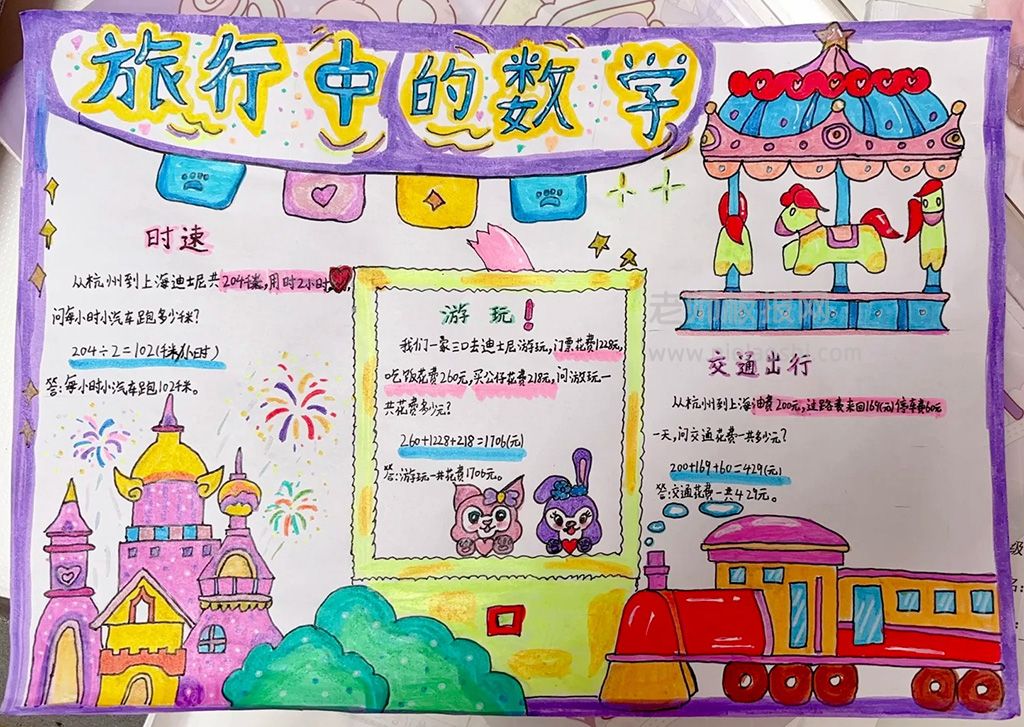 旅行中的数学
时速
从杭州到上海迪士尼共204千米,用时2小时
问每小时小汽车跑多少千米?
204÷2=102(千米/小时)
答:每小时小汽车跑102千米。
游玩!
我们一家三口去迪士尼游玩,门票花费1228元,
吃饭花费260元,买公仔花费218元,问游玩一
共花费多少元?
260+1228+218=1706(元)
答:游玩一共花费1706元。
交通出行
从杭州到上海油费200元,过路费来回169(元)停车费60元
一天,问交通花费一共多少元?
200+169+60=429(元)
答:交通花费一共429元。
级
名: